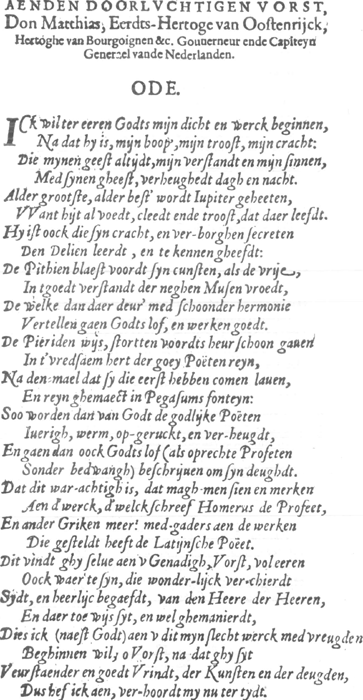 AENDEN DOORLVCHTIGEN VORST,
Don Matthias, Eerdts-Hertoge van Oostenrijck,
Hertoghe van Bourgoignen &c. Gouuerneur ende Capiteyn
Generael vande Nederlanden.
ODE.
ICk wil ter eeren Godts mijn dicht en werck beginnen,
Na dat hy is, mijn hoop, mijn troost, mijn cracht:
Die mynen geest altijdt, mijn verstandt en mijn sinnen,
Med synen gheest, verheughedt dagh en nacht.
Alder grootste, alder best' wordt Iupiter geheeten,
VVant hijt al voedt, cleedt ende troost, dat daer leefdt.
Hy ist oock die syn cracht, en ver-borghen secreten
Den Delien leerdt, en te kennen gheefdt:
De Pithien blaest voordt syn cunsten, als de vrije,
In tgoedt verstandt der neghen Musen vroedt,
De welke dan daer deur' med schoonder hermonie
Vertellen gaen Godts lof, en werken goedt.
De Pieriden wijs, stortten voordts heur schoon gauen
In t'vredsaem hert der goey Poëten reyn,
Na den-mael dat sy die eerst hebben comen lauen,
En reyn ghemaeckt in Pegasums fonteyn:
Soo worden dan van Godt de godlijke Poëten
Iuerigh, werm, op-geruckt, en ver-heugdt,
En gaen dan oock Godts lof (als oprechte Profeten
Sonder bedwangh) beschrijuen om syn deughdt.
Dat dit war-achtigh is, dat magh-men sien en merken
Aen d'werck, d'welck schreef Homerus de Profeet,
En ander Griken meer! med-gaders aen de werken
Die gesteldt heeft de Latijnsche Poëet.
Dit vindt ghy selue aen v Genadigh, Vorst, vol eeren
Oock waer te syn, die wonder-lijck ver-chierdt
Sydt, en heerlijc begaefdt, van den Heere der Heeren,
En daer toe wijs syt, en wel ghemanierdt,
Dies ick (naest Godt) aen v dit myn slecht werck med vreugden
Beghinnen wil, o Vorst, na-dat ghy syt
Veurstaender en goedt Vrindt, der Kunsten en der deugden,
Dus hef ick aen, ver-hoordt my nu ter tydt.